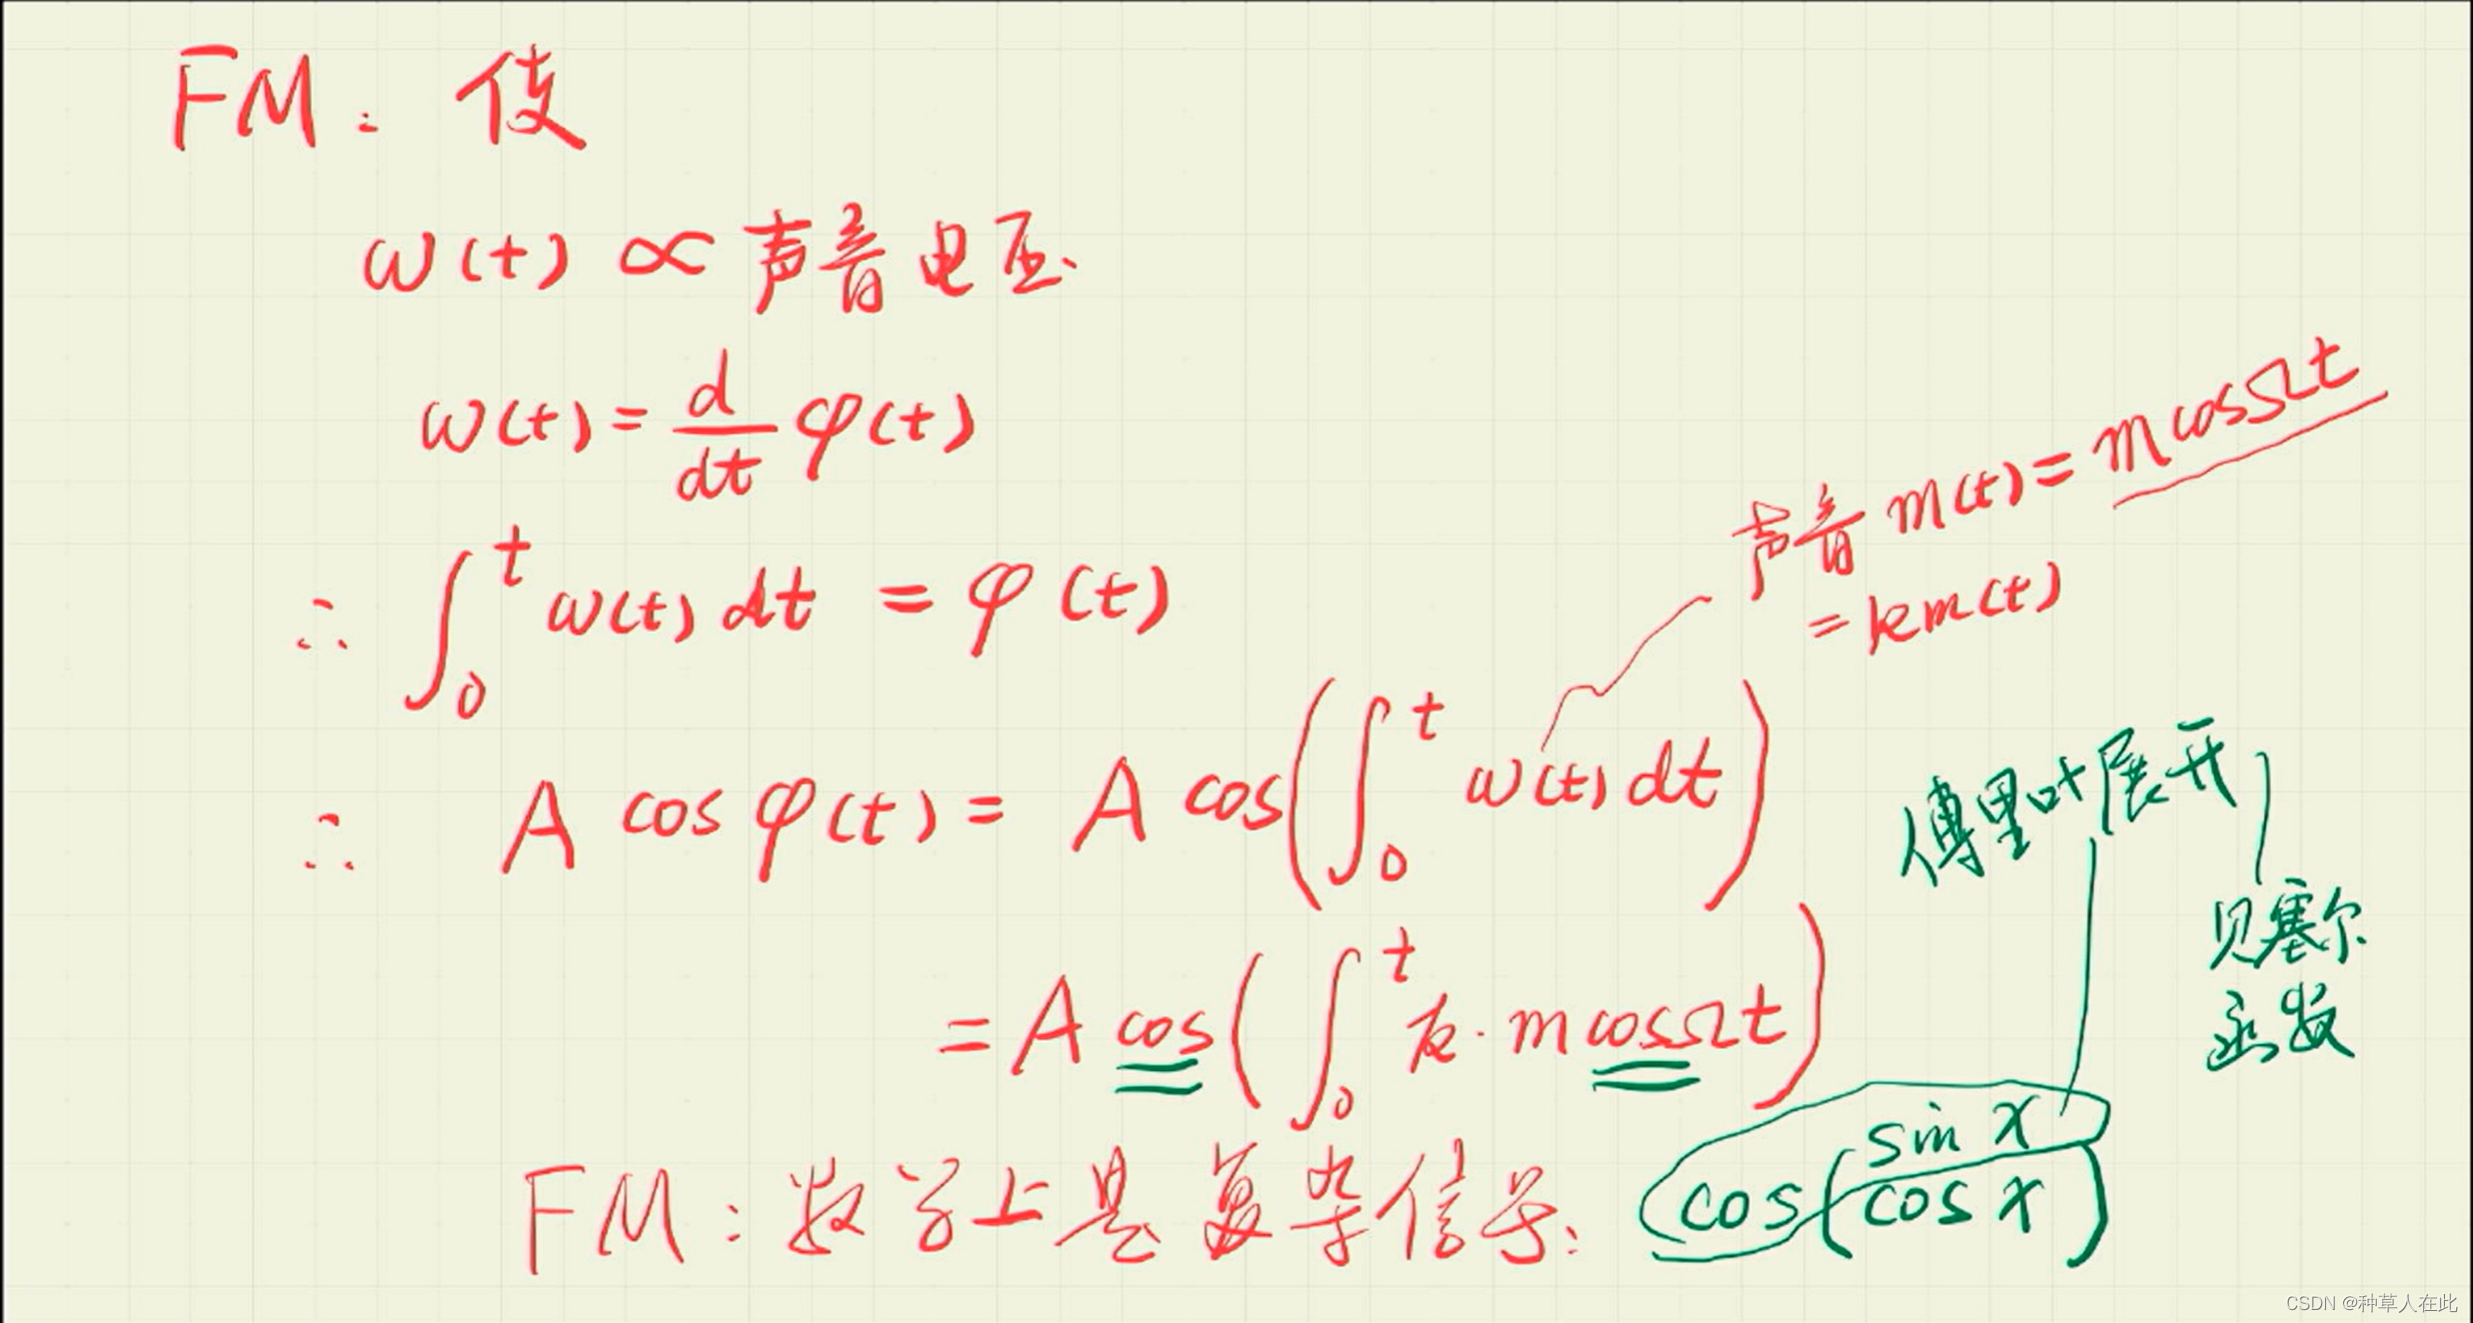 FM: 使
ω(t) ∝ 声音电压.
ω(t) = d/dt φ(t)
∴ ∫₀ᵗ ω(t) dt = φ(t)
声音 m(t) = m cosΩt
= km(t)
∴ A cos φ(t) = A cos(∫₀ᵗ ω(t) dt)
傅里叶展开
贝塞尔
函数
= A cos(∫₀ᵗ k·m cosΩt)
FM: 数学上是复杂信号:
cos(sin x / cos x)
CSDN @种草人在此